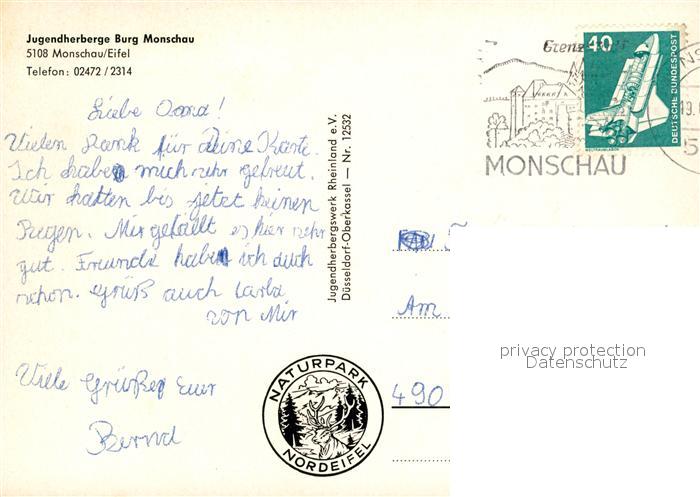 Jugendherberge Burg Monschau
5108 Monschau/Eifel
Telefon: 02472/2314
Liebe Oma!
Vielen Dank für Deine Karte.
Ich habe mich sehr gefreut.
Wir hatten bis jetzt keinen
Regen. Mir gefällt es hier sehr
gut. Freunde habe ich auch
schon. Grüß auch Carla
von Mir
Viele Grüße Euer
Bernd
Jugendherbergswerk Rheinland e.V.
Düsseldorf-Oberkassel — Nr. 12532
NATURPARK
NORDEIFEL
MONSCHAU
40
DEUTSCHE BUNDESPOST
WELTRAUMLABOR
Am
490
privacy protection
Datenschutz